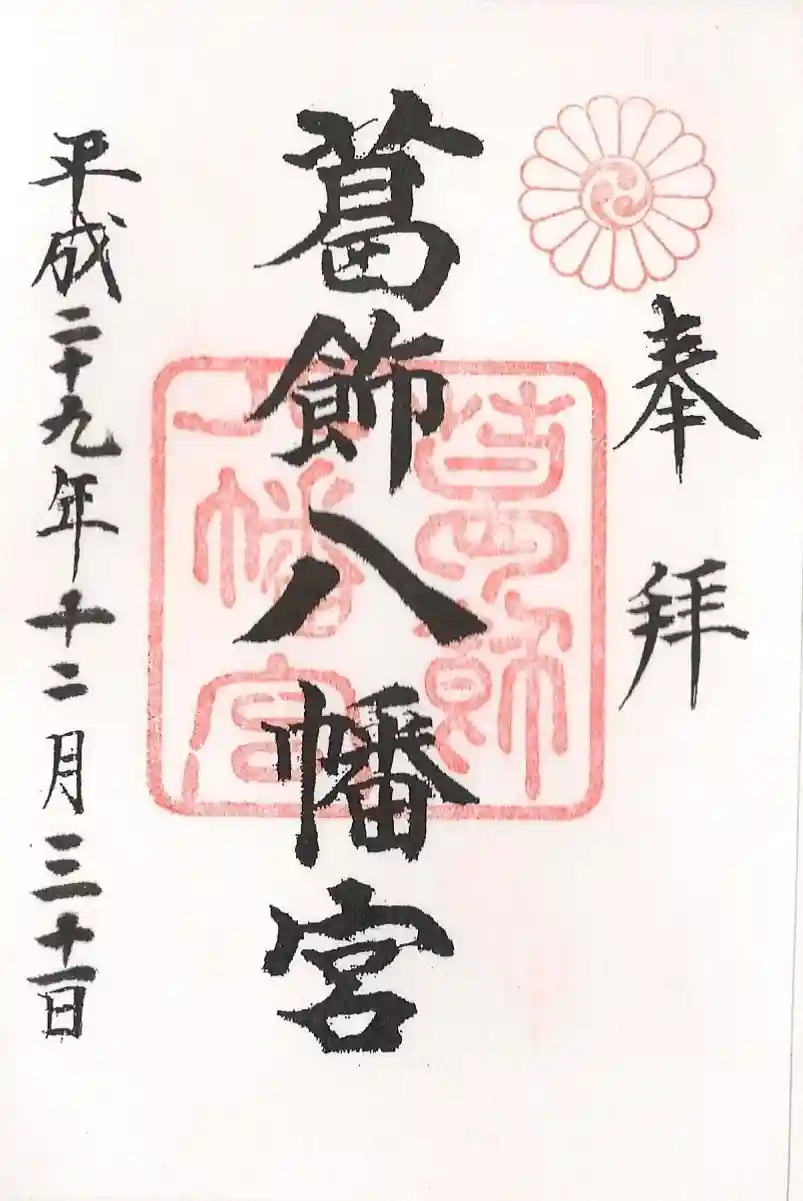 奉拝
葛飾八幡宮
葛飾
八幡宮
平成二十九年十二月三十一日